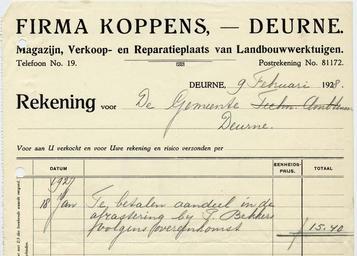 FIRMA KOPPENS, — DEURNE.
Magazijn, Verkoop- en Reparatieplaats van Landbouwwerktuigen.
Telefoon No. 19. Postrekening No. 81172.
DEURNE, 9 Februari 1928.
Rekening voor De Gemeente
Deurne.
Voor aan U verkocht en voor Uwe rekening en risico verzonden per
DATUM EENHEIDS-PRIJS. TOTAAL
1927
18 Jan Te betalen aandeel in de
afrastering bij P. Bekkers
volgens overeenkomst 15.40